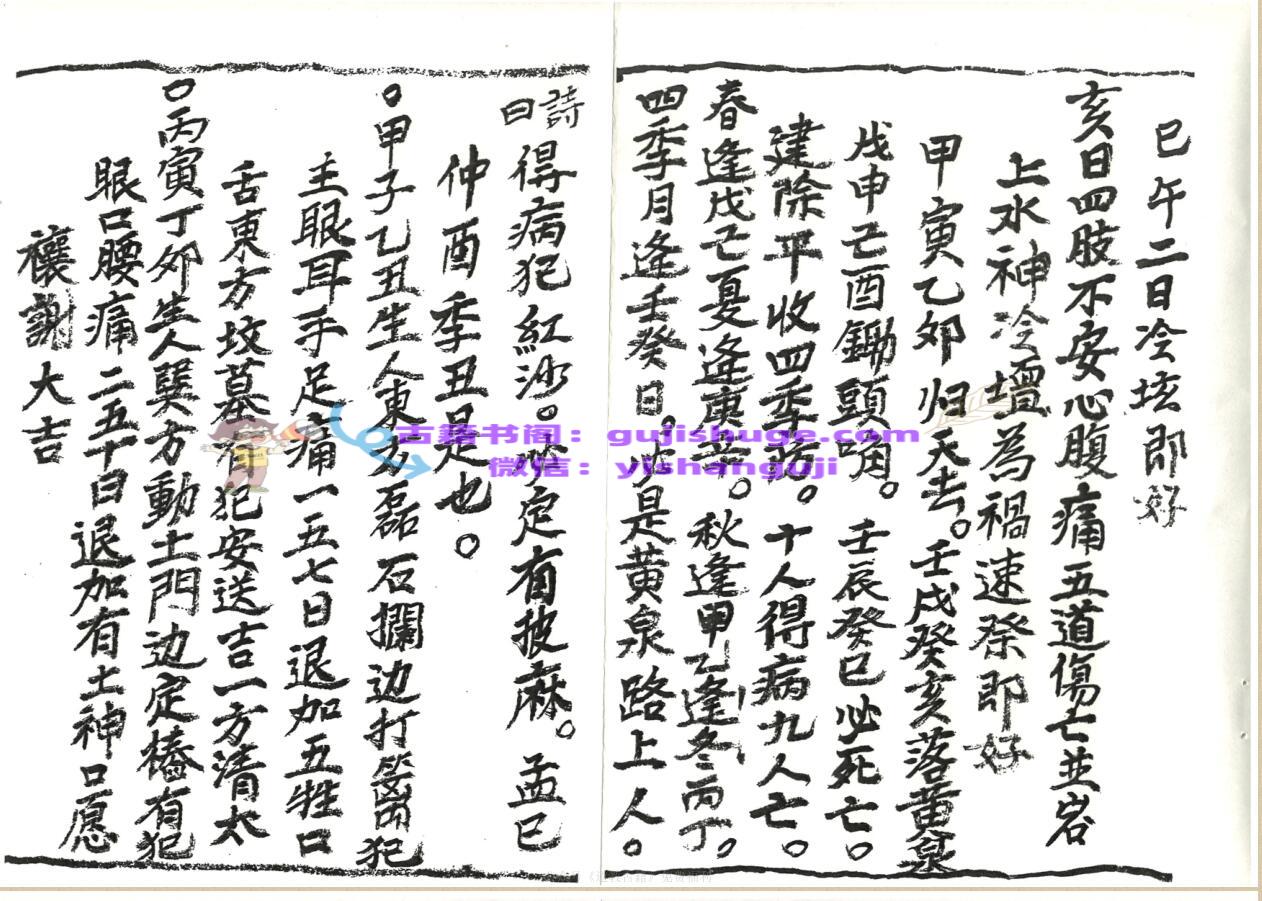 巳午二日冷坛即好
亥日四肢不安心腹痛五道傷亡並岩
上水神冷壇為禍速祭即好
甲寅乙卯归天去。壬戌癸亥落黄泉
戊申己酉鋤頭响。壬辰癸巳必死亡。
建除平收四季防。十人得病九人亡。
春逢戊己夏逢庚辛。秋逢甲乙逢冬丙丁。
四季月逢壬癸日。此是黄泉路上人。
詩曰得病犯紅沙。必定有披麻。孟巳
仲酉季丑是也。
。甲子乙丑生人東方磊石攔边打犯
主眼耳手足痛一五七日退加五牲口
舌東方坟墓有犯安送吉一方清太
。丙寅丁卯生人巽方動土門边定樁有犯
眼口腰痛二五十日退加有土神口愿
禳謝大吉
古籍书阁：gujishuge.com
微信：yishanguji